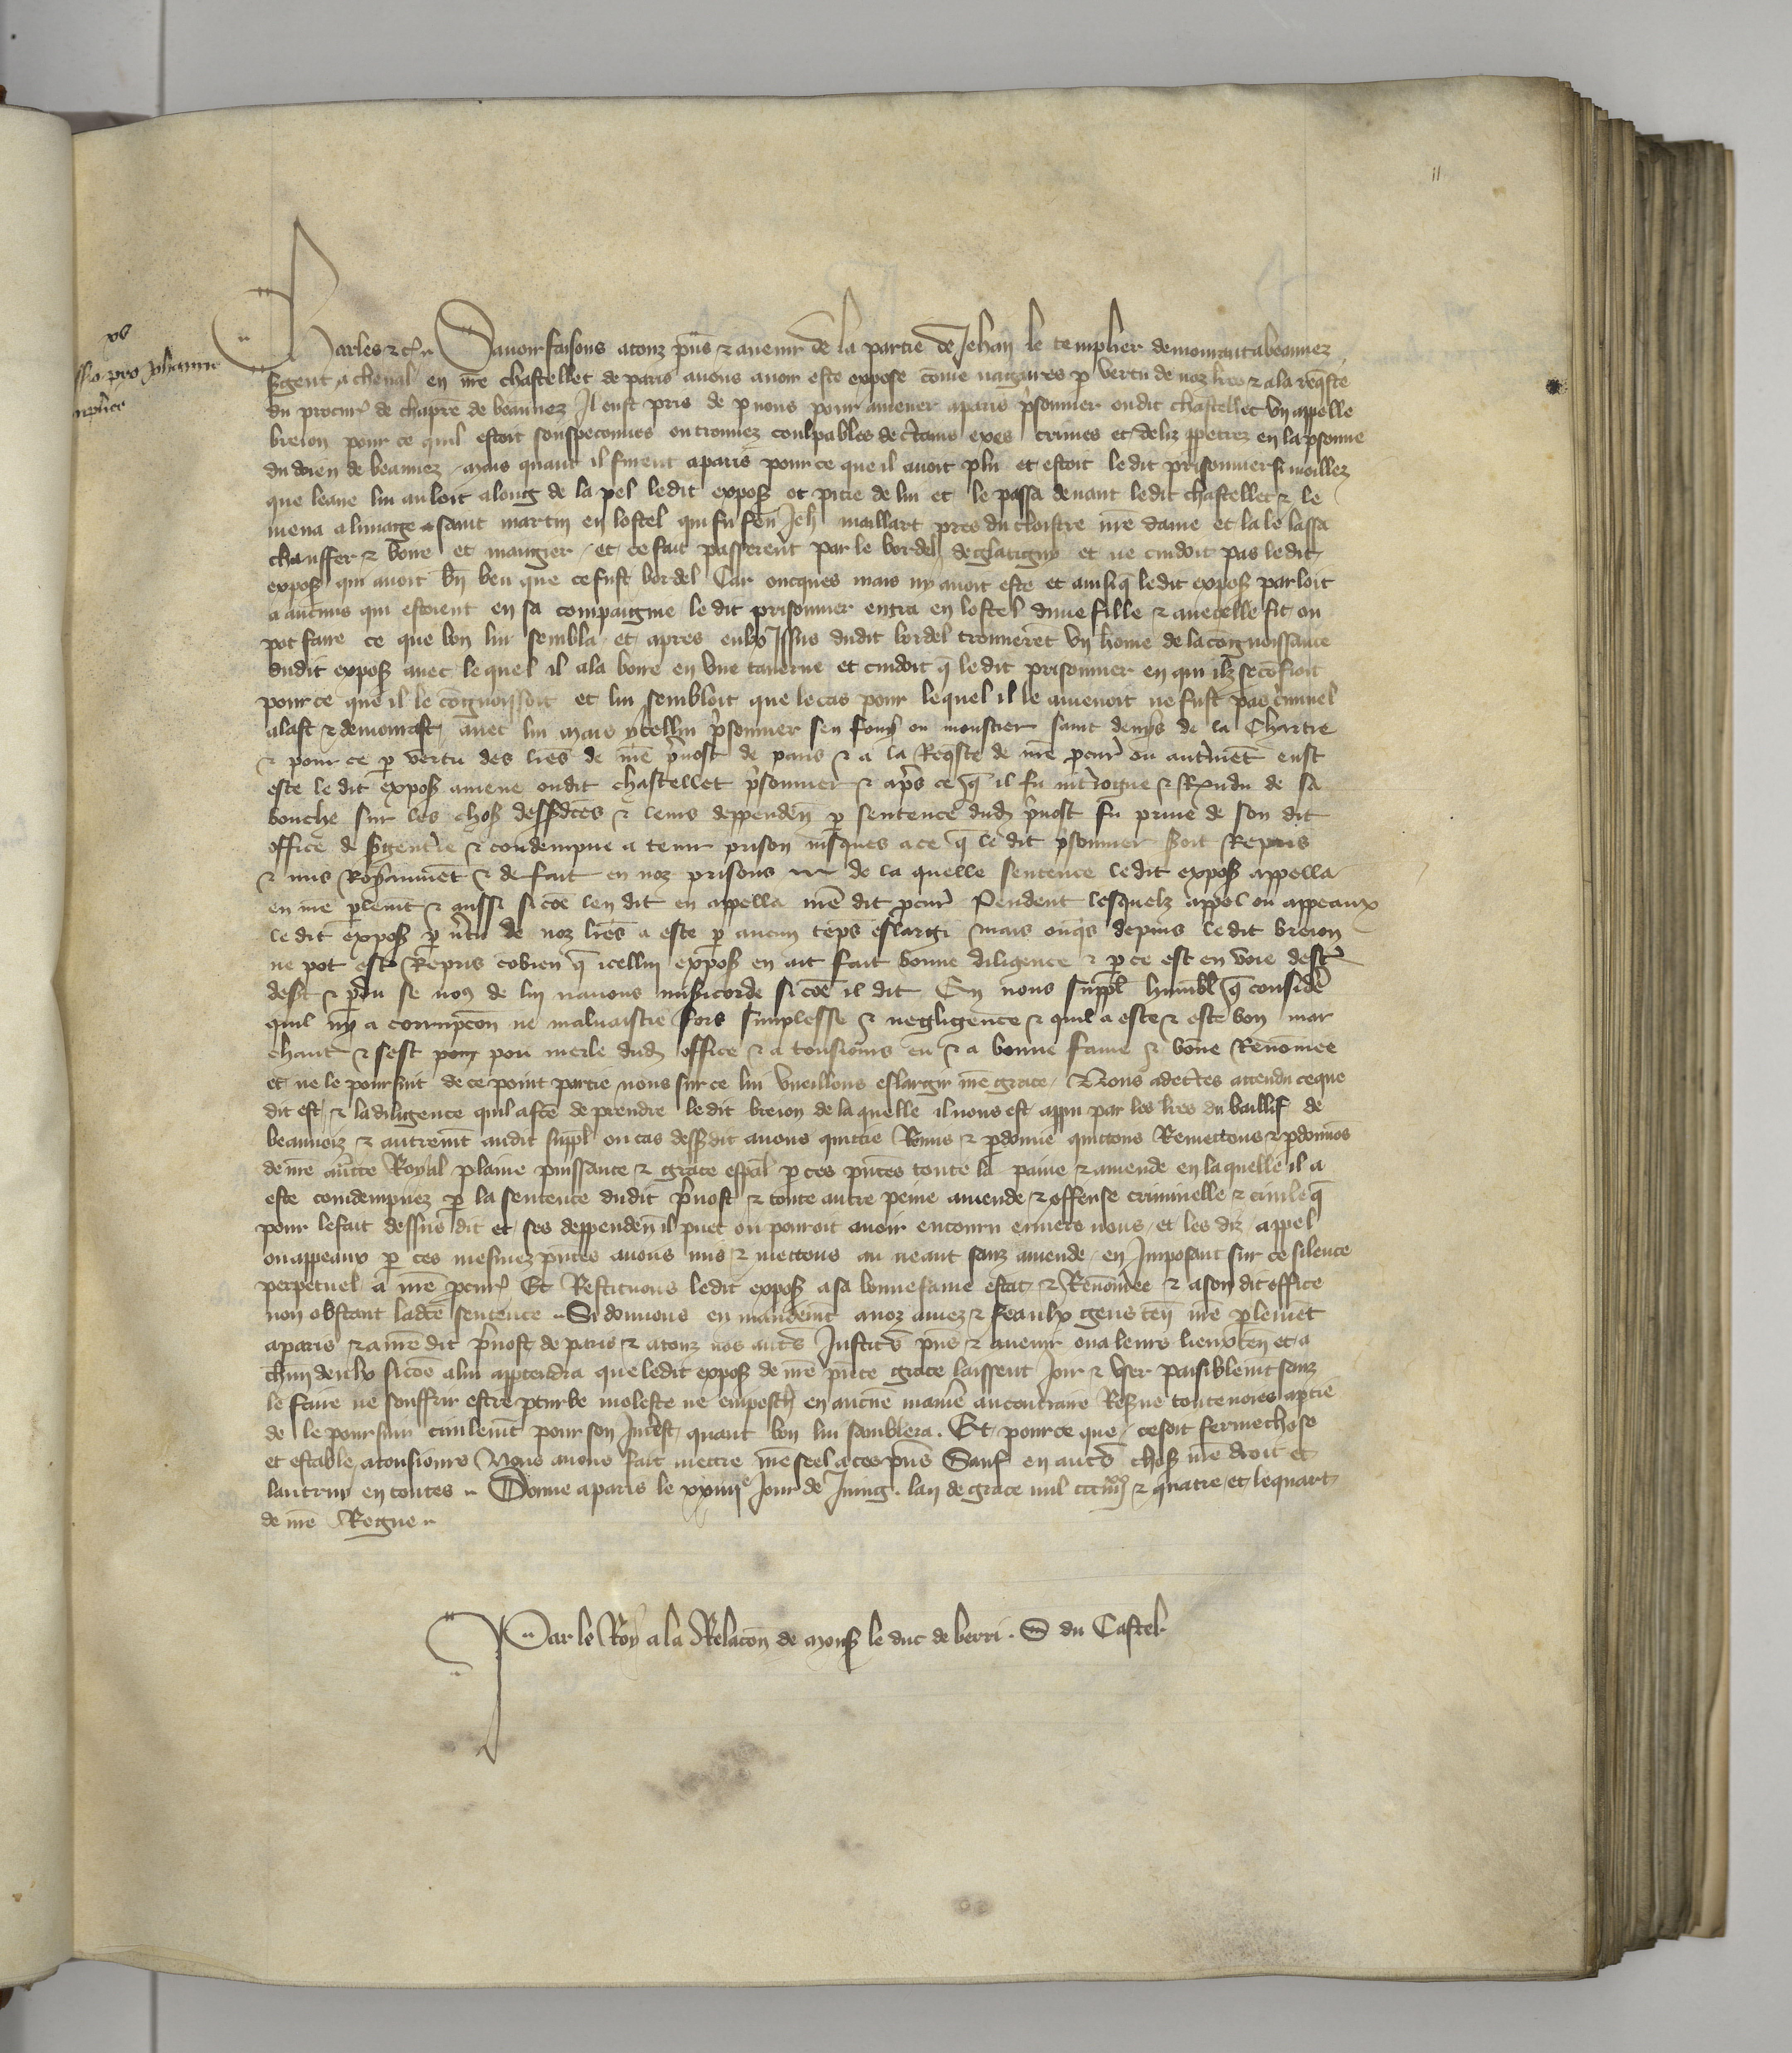 11
xv
pro Johanne
Charles &c. Savoir faisons a touz pñs & avenir de la partie de Jehan le templier demourant a beauvez
sgent a cheval en nr̃e chastellet de paris avons avoir este expose cõme nagaires p vertu de noz lr̃es & a la req̃ste
du procur̃ de chapr̃e de beauvez Il eust pris de p nous pour amener a paris p̃sonnier oudit chastellet un appelle
breion pour ce quil estoit souspeconnes ou trouvez coulpables de c̃tains exes crimes et deliz ppetrez en la psonne
du doien de beauvez mais quant il furent a paris pour ce que il avoit plu et estoit le dit prisonnier si moillez
que leaue lui auloit along de la pel ledit expos̃ ot pitie de lui et le passa devant ledit chastellet & le
mena a limage saint martin en lostel qui fu feu Jeh̃ maillart pres du cloistre nr̃e dame et la le laissa
chauffer & boire et mangier et ce fait passerent par le bordel de glatigny et ne cuidoit pas ledit
expos̃ qui avoit bñ beu que ce fust bordel Car oncques mais ny avoit este et ainsi q̃ ledit expos̃ parloit
a aucuns qui estoient en sa compaignie le dit prisonnier entra en lostel dune fille & avec elle fit ou
pot faire ce que bon lui sembla et apres eulx Issus dudit bordel trouverẽt un hõme de la congnoissance
dudit expos̃ avec lequel il ala boire en une taverne et cuidoit q̃ ledit prisonnier en qui il se cõfioit
pour ce que il le cõgnoissoit et lui sembloit que le cas pour lequel il le amenoit ne fust pas c̃minel
alast & demourast avec lui mais ycellui p̃sonnier sen fouy ou moustier saint denys de la Chartre
& pour ce p vertu des lr̃es de nr̃e p̃vost de paris & a la Req̃ste de nr̃e pcur̃ ou autr̃mẽt eust
este le dit expos̃ amene oudit chastellet p̃sonnier & ap̃s ce q̃ il fu int̃rogue & de sa
bouche sur les chos̃ dess̃dc̃es & leurs deppendeñ p sentence dud̃ p̃vost fu prive de son dit
office de s̃gent̃ie & condempne a tenir prison jusques a ce q̃ le dit p̃sonnier soit Repris
& mis Roỹaumẽt & de fait en noz prisons de la quelle sentence ledit expos̃ appella
en nr̃e plemt̃ & aussi si cõe len dit en appella nr̃e dit pcur̃ Pendent lesquelz appel ou appeaux
le dit expos̃ p v̂tu de noz lr̃es a este p aucun tẽps eslargi mais onq̃s depuis le dit breion
ne pot est̃ Repris cõbien q̃ icellui expos̃ en ait fait bonne diligence & p ce est en voie dest̃
desert & pdu se no9 de lui navons mis̃icorde si cõe il dit En nous suppl̃ humbl̃ q̃ considẽ
quil ny a corrupcõn ne malvaistie fors simplesse & negligence & quil a este & este bon mar
chant & sest pou mesle dud̃ office & a tousiours eu & a bonne fame & bõne Renõmee
et ne le poursuit de ce point partie nous sur ce lui vueillons eslargir nr̃e grace. Nous adec̃tes attendu ce que
dit est & la diligence quil a fcẽ de prendre ledit breion de la quelle il nous est appu par les lr̃es du baillif de
beauvoiz & autremt̃ audit suppl̃ ou cas dess̃dit avons quittie Remis & pdonne quittons Remettons & pdonnõs
de nr̃e auc̃te Royal plaine puissance & grace esp̃al p ces pñtes toute la paine & amende en laquelle il a
este condempnez p la sentence dudit p̃vost & toute autre peine amende & offense criminelle & civile q̃
pour lefait dessus dit et ses deppendeñ il puet ou pourroit avoir encouru envers nous et les diz appel
ou appeaux p ces mesmez pñtes avons mis & mettons au neant sanz amende en Imposant sur ce silence
perpetuel a nr̃e pcur̃ Et Restituons ledit expos̃ a sa bonne fame estat & Renõmee & a son dit office
non obstant ladc̃e sentence Si donnons en mandemt̃ a noz amez & feaulx gens teñ nr̃e plemẽt
a paris & a nr̃e dit p̃vost de paris & a touz nos aut̃s Justic̃s pñs & avenir ou a leurs lieuxteñ et a
chũn deulx si cõe a lui apptendra que ledit expos̃ de nr̃e pñte grace laissent Joir & user paisiblemt̃ sanz
le faire ne souffrir estre pturbe moleste ne empesch̃ en aucũe maniẽ au contraire Res̃ve toutevoies a ptie
de le poursuir civilemt̃ pour son Int̃est quant bon lui samblera. Et pour ce que ce soit ferme chose
et estable a tousiours Nous avons fait mettre nr̃e seel a ces pñs Sauf en aut̃s chos̃ nr̃e droit et
lautruy en toutes Donne a paris le xxiiiie Jour de Juing. lan de grace mil ccc iiiixx & quatre et le quart
de nr̃e Regne
Par le Roy a la Relacõn de mons̃ le duc de berri. S du Castel